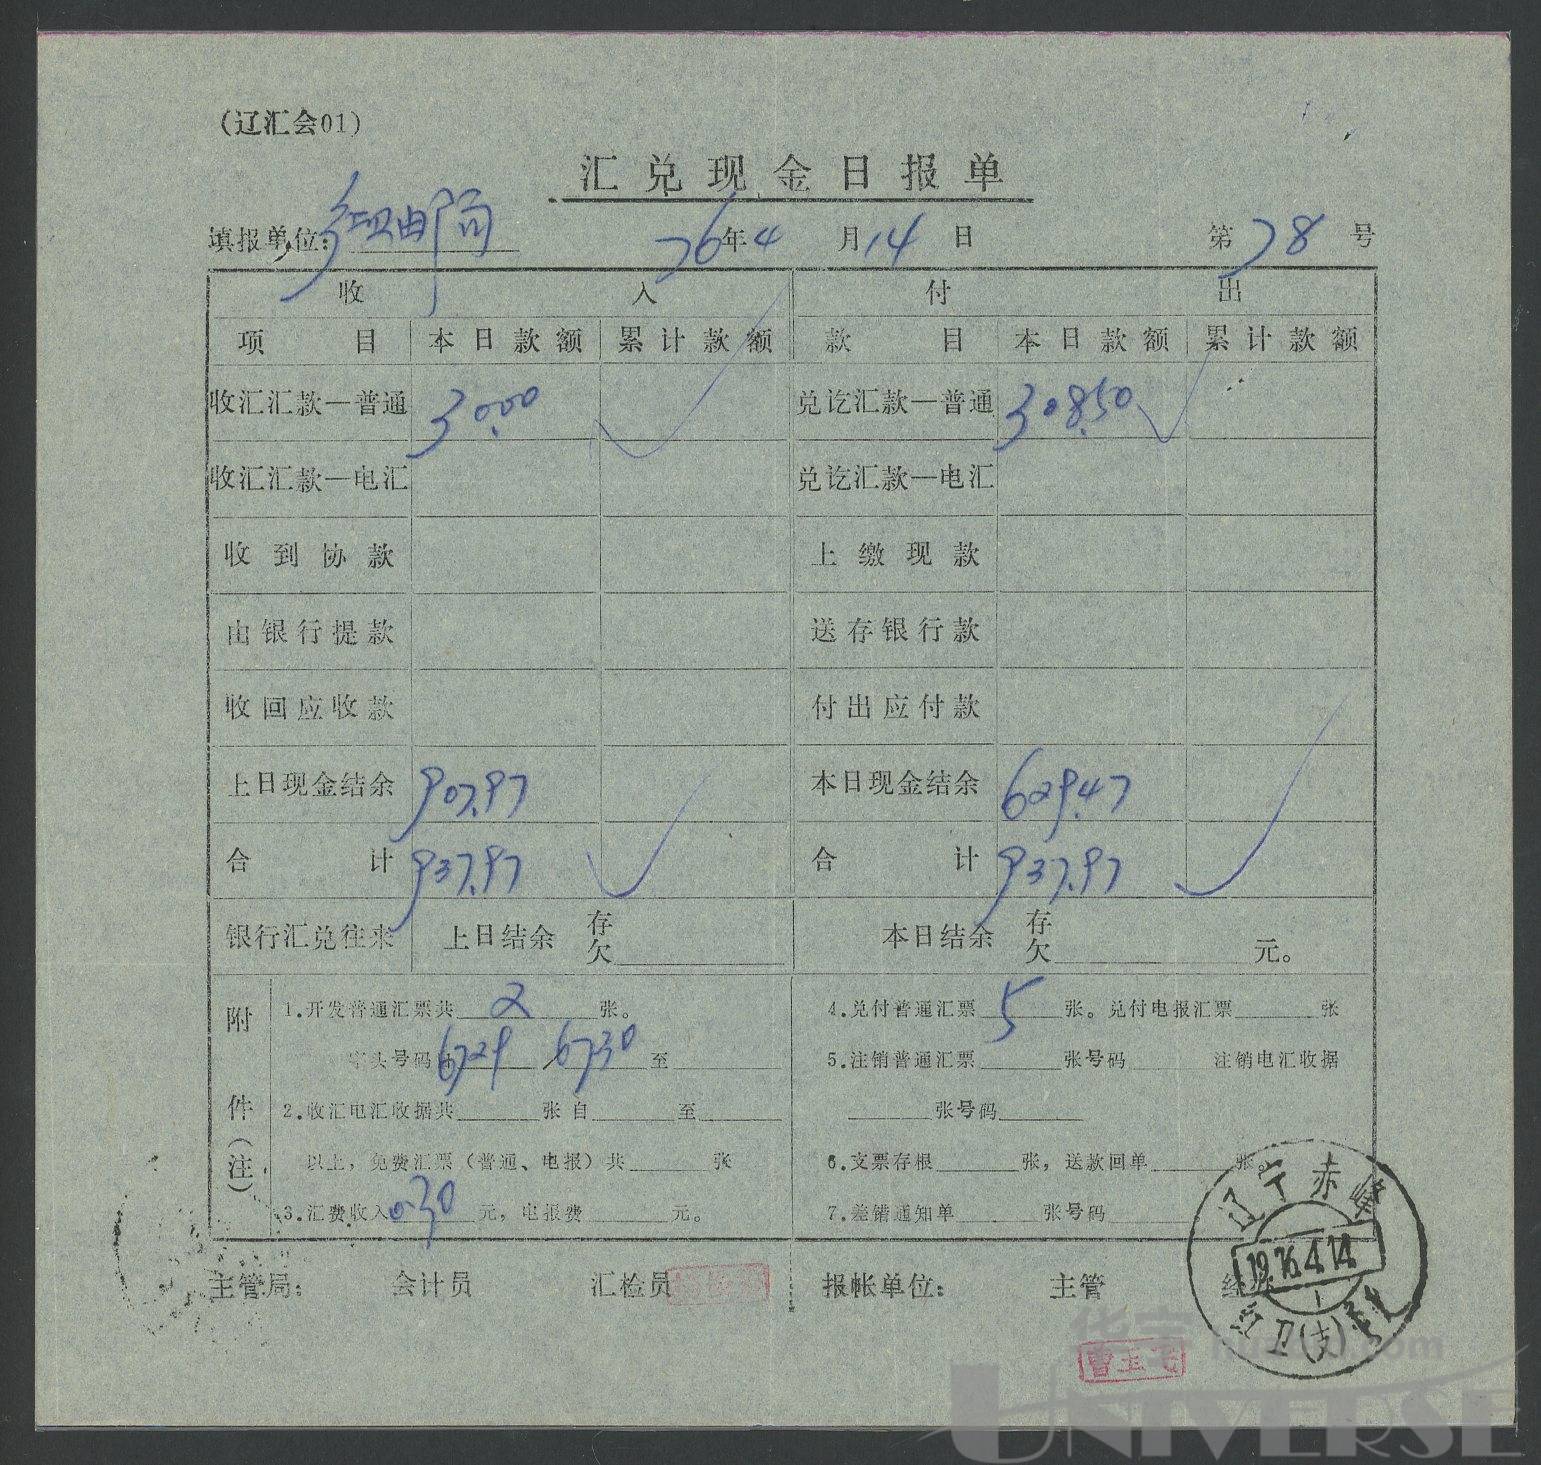 (辽汇会01)
汇兑现金日报单
填报单位: 红卫邮局 76年4月14日 第78号
收入 付出
项目 本日款额 累计款额 款目 本日款额 累计款额
收汇汇款—普通 30.00 兑讫汇款—普通 308.50
收汇汇款—电汇 兑讫汇款—电汇
收到协款 上缴现款
由银行提款 送存银行款
收回应收款 付出应付款
上日现金结余 907.97 本日现金结余 629.47
合计 937.97 合计 937.97
银行汇兑往来 上日结余 存欠 本日结余 存欠 元。
附件(注)
1.开发普通汇票共 2 张。 4.兑付普通汇票 5 张。兑付电报汇票 张
字头号码 6729 6730 至 5.注销普通汇票 张号码 注销电汇收据
2.收汇电汇收据共 张自 至 张号码
以上,免费汇票(普通、电报)共 张 6.支票存根 张,送款回单 张。
3.汇费收入 0.30 元,电报费 元。 7.差错通知单 张号码
主管局: 会计员 汇检员 报帐单位: 主管 经
辽宁赤峰
1976.4.14
1
红卫(支)
曹玉
华宇 huabid.com
UNIVERSE